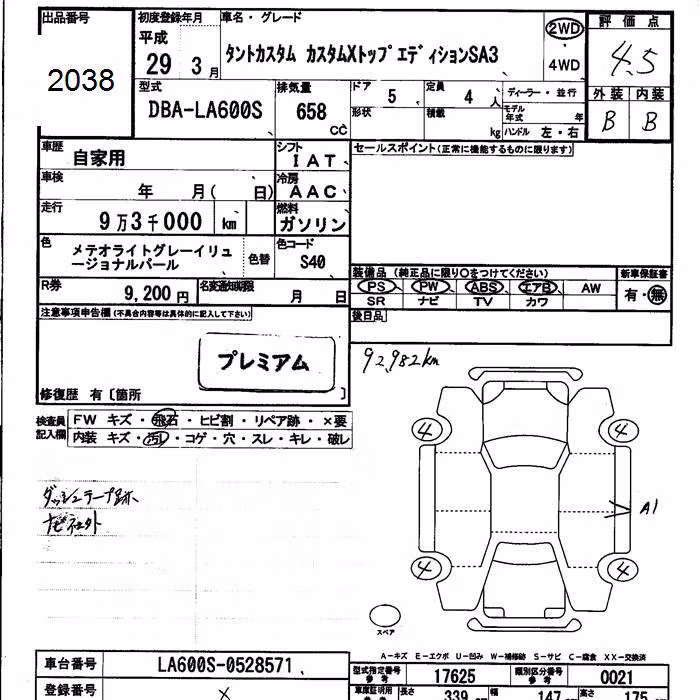 出品番号
2038
初度登録年月
平成
29 3月
車名・グレード
タントカスタム カスタムXトップエディションSA3
2WD
4WD
評価点
4.5
外装 内装
B B
型式
DBA-LA600S
排気量
658
CC
ドア
5
定員
4人
形状
積載
kg
ディーラー・並行
モデル年式 年
ハンドル 左・右
車歴
自家用
シフト
IAT
セールスポイント(正常に機能するものに限ります)
車検
年 月( 日)
冷房
AAC
走行
9万3千000 km
燃料
ガソリン
色
メテオライトグレーイリュ
ージョナルパール
色替
色コード
S40
R券
9,200円
名変通知期限
月 日
装備品 (純正品に限り○をつけてください)
PS PW ABS エアB AW
SR ナビ TV カワ
新車保証書
有・無
後日品
注意事項申告欄(不具合内容等は具体的に記入して下さい)
プレミアム
修復歴 有〔箇所 〕
92,982km
検査員
記入欄
FW キズ・飛石・ヒビ割・リペア跡・×要
内装 キズ・汚レ・コゲ・穴・スレ・キレ・破レ
ダッシュテープ跡
4 4
A1
4 4
スペア
A-キズ E-エクボ U-凹み W-補修跡 S-サビ C-腐食 XX-交換済
車台番号
LA600S-0528571
型式指定番号
参考
17625
類別区分番号
参考
0021
登録番号
×
車庫証明用
参考
長さ
339
幅
147
高さ
175